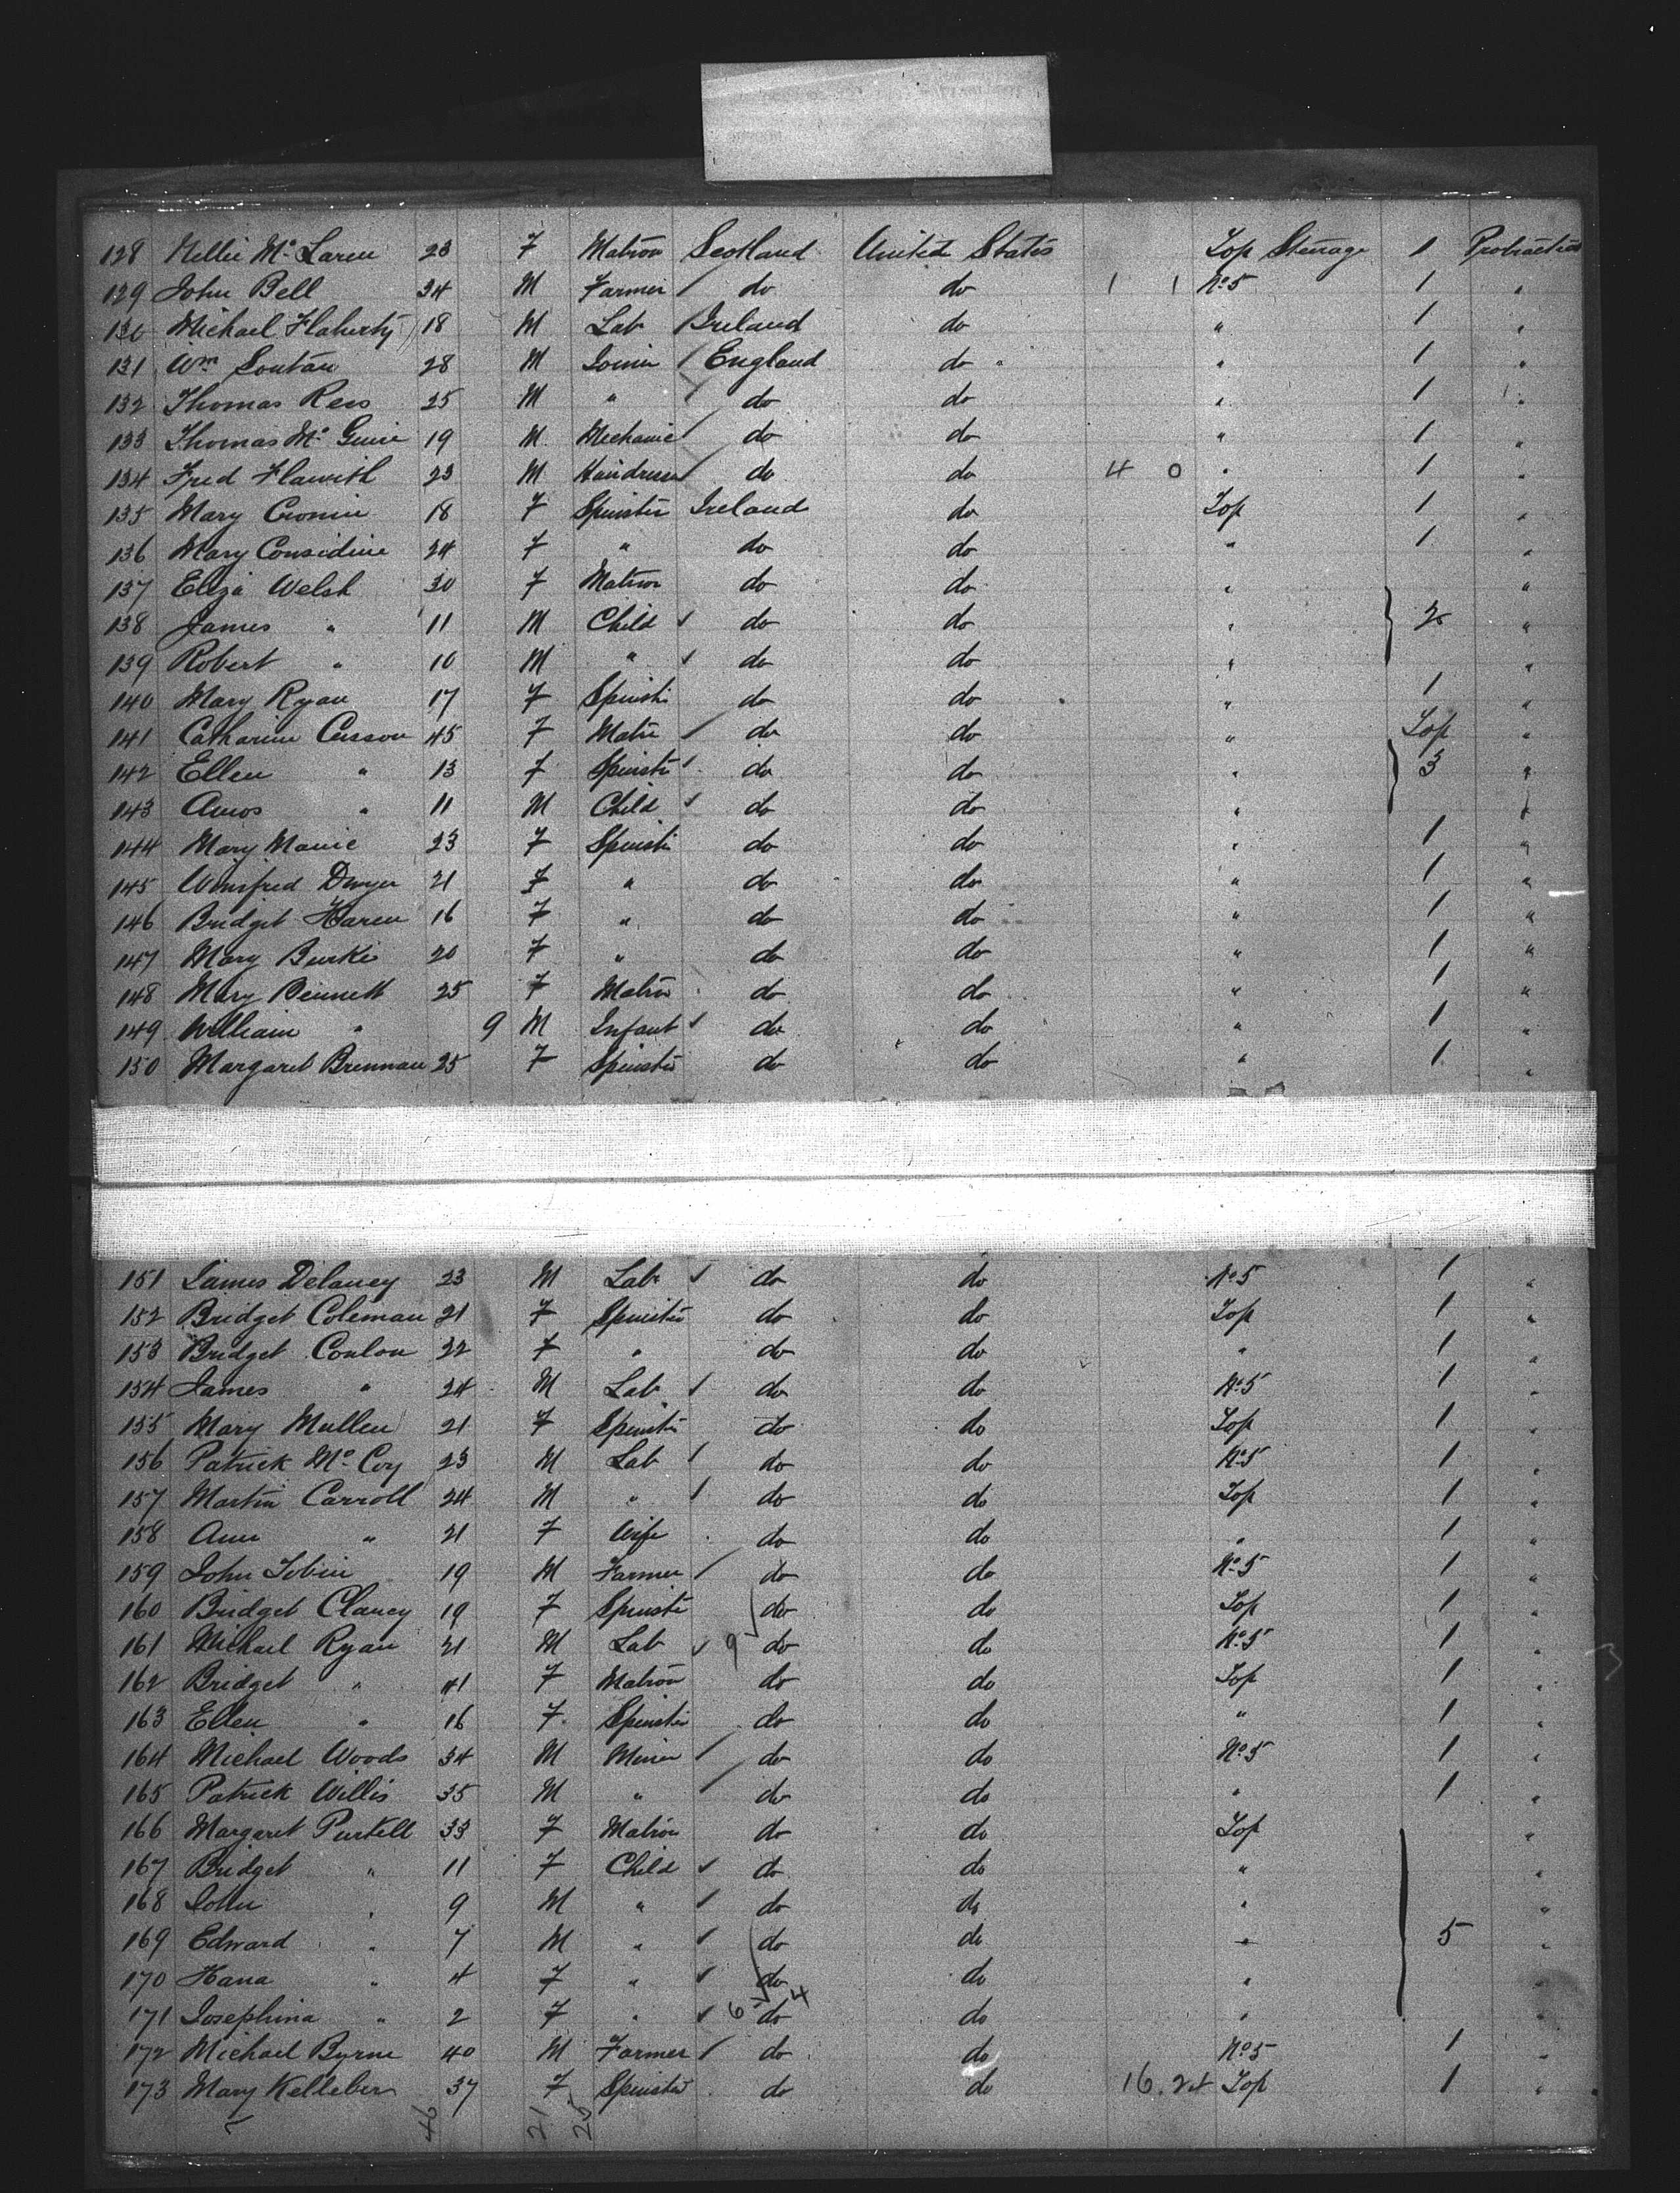 128 Nellie Mc Laren 23 F Matron Scotland United States Top Steerage 1 Protraction
129 John Bell 34 M Farmer / do do 1 1 No 5 1 "
130 Michael Flaherty 18 M Lab Ireland do " 1 "
131 Wm Soutan 28 M Joiner / England do " 1 "
132 Thomas Rees 25 M " do do " 1 "
133 Thomas Mc Guire 19 M Mechanic / do do " 1 "
134 Fred Flawith 23 M Hairdresser do do 4 0 " 1 "
135 Mary Cronin 18 F Spinster Ireland do Top 1 "
136 Mary Considine 24 F " do do " 1 "
137 Eliza Welsh 30 F Matron do do " "
138 James " 11 M Child ✓ do do " 2 "
139 Robert " 10 M " ✓ do do " "
140 Mary Ryan 17 F Spinstr do do " 1 "
141 Catharine Cusson 45 F Matrn / do do " Top "
142 Ellen " 13 F Spinstr / do do " 3 "
143 Amos " 11 M Child ✓ do do " "
144 Mary Manie 23 F Spinstr do do " 1 "
145 Winifred Dwyer 21 F " do do " 1 "
146 Bridget Haren 16 F " do do " 1 "
147 Mary Burke 20 F " do do " 1 "
148 Mary Bennett 25 F Matron do do " 1 "
149 William " 9 M Infant ✓ do do " 1 "
150 Margaret Brennan 25 F Spinster do do " 1 "
151 James Delaney 23 M Lab ✓ do do No 5 1 "
152 Bridget Coleman 21 F Spinster do do Top 1 "
153 Bridget Conlon 22 F " do do " 1 "
154 James " 24 M Lab ✓ do do No 5 1 "
155 Mary Mullen 21 F Spinstr do do Top 1 "
156 Patrick Mc Coy 23 M Lab / do do No 5 1 "
157 Martin Carroll 24 M " / do do Top 1 "
158 Ann " 21 F Wife do do " 1 "
159 John Tobin 19 M Farmer / do do No 5 1 "
160 Bridget Clancy 19 F Spinstr do do Top 1 "
161 Michael Ryan 21 M Lab ✓ 9 do do No 5 1 "
162 Bridget " 41 F Matron do do Top 1 "
163 Ellen " 16 F Spinster do do " 1 "
164 Michael Woods 34 M Miner / do do No 5 1 "
165 Patrick Willis 35 M " / do do " 1 "
166 Margaret Purtell 33 F Matron do do Top "
167 Bridget " 11 F Child ✓ do do " "
168 John " 9 M " / do do " "
169 Edward " 7 M " ✓ do do " 5 "
170 Hana " 4 F " ✓ do do " "
171 Josephina " 2 F " ✓ 6 do 4 do " "
172 Michael Byrne 40 M Farmer / do do No 5 1 "
173 Mary Kelleher 37 F Spinster do do 16. 24 Top 1 "
46 21 25